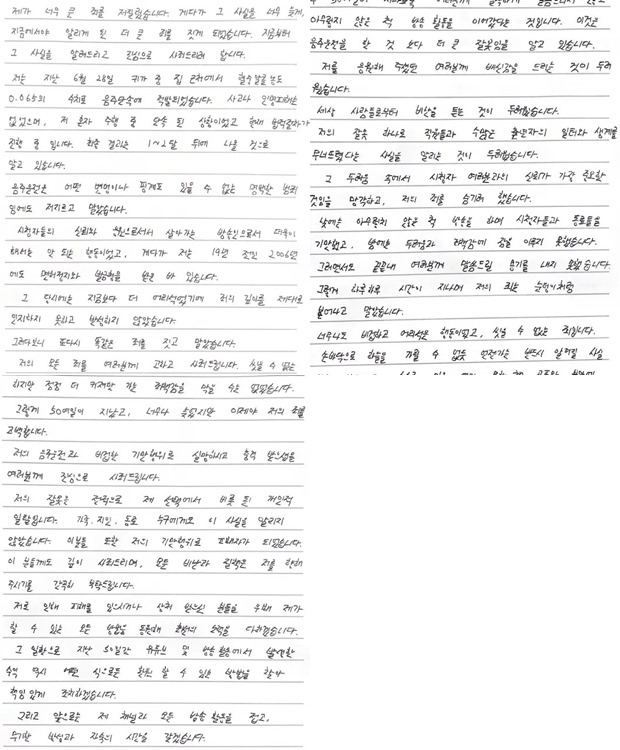 제가 너무 큰 죄를 저질렀습니다. 게다가 그 사실을 너무 늦게,
지금에서야 알리게 된 더 큰 죄를 짓게 되었습니다. 지금부터
그 사실을 알려드리고 진심으로 사죄드리려 합니다.
저는 지난 6월 28일 귀가 중 집 근처에서 혈중알콜농도
0.065의 수치로 음주단속에 적발되었습니다. 사고나 인명피해는
없었으며, 저 혼자 주행 중 단속 된 상황이었고 현재 법적절차가
진행 중 입니다. 최종 결과는 1~2달 뒤에 나올 것으로
알고 있습니다.
음주운전은 어떤 변명이나 핑계도 있을 수 없는 명백한 범죄
임에도 저지르고 말았습니다.
시청자들의 신뢰와 응원으로서 살아가는 방송인으로서 더욱이
해서는 안 되는 행동이었고, 게다가 저는 19년 전인 2006년
에도 면허정지와 벌금형을 받은 바 있습니다.
그 당시에는 지금보다 더 어리석었기에 죄의 깊이를 제대로
인지하지 못하고 반성하지 않았습니다.
그러다보니 또다시 똑같은 죄를 짓고 말았습니다.
저의 모든 죄를 여러분께 고하고 사죄드립니다. 씻을 수 없는
하지만 점점 더 커져만 가는 죄책감을 막을 수는 없었습니다.
그렇게 50여일이 지났고, 너무나 늦었지만 이제야 저의 죄를
고백합니다.
저의 음주운전과 비겁한 기만행위로 실망하시고 충격 받으셨을
여러분께 진심으로 사죄드립니다.
저의 잘못은 전적으로 제 선택에서 비롯 된 개인적
일탈입니다. 가족, 지인, 동료 누구에게도 이 사실을 알리지
않았습니다. 이분들 또한 저의 기만행위로 피해자가 되었습니다.
이 분들께도 깊이 사죄드리며, 모든 비난과 질책은 저를 향해
주시기를 간곡히 부탁드립니다.
저로 인해 피해를 입으시거나 상처 받으신 분들을 위해 제가
할 수 있는 모든 방법을 동원해 최선의 노력을 다하겠습니다.
그 일환으로 지난 50일간 유튜브 및 방송 활동에서 발생한
수익 역시 어떤 식으로든 환원 할 수 있는 방법을 찾아
책임 있게 조치하겠습니다.
그리고 앞으로는 제 채널과 모든 방송 활동을 접고,
무기한 반성과 자숙의 시간을 갖겠습니다.
아무렇지 않은 척 방송 활동을 이어갔다는 것입니다. 이것은
음주운전을 한 것 보다 더 큰 잘못임을 알고 있습니다.
저를 응원해 주셨던 여러분께 배신감을 드리는 것이 두려
웠습니다.
세상 사람들로부터 비난을 듣는 것이 두려웠습니다.
저의 잘못 하나로 직원들과 수많은 출연자의 일터와 생계를
무너뜨렸다는 사실을 알리는 것이 두려웠습니다.
그 두려움 속에서 시청자 여러분과의 신뢰가 가장 중요한
것임을 망각하고, 저의 죄를 숨기려 했습니다.
낮에는 아무렇지 않은 척 방송을 하며 시청자들과 동료들을
기만했고, 밤에는 두려움과 죄책감에 잠을 이루지 못했습니다.
그러면서도 끝끝내 여러분께 말씀드릴 용기를 내지 못했습니다.
그렇게 하루하루 시간이 지나며 저의 죄는 눈덩이처럼
불어나고 말았습니다.
너무나도 비겁하고 어리석은 행동이었고, 씻을 수 없는 죄입니다.
손바닥으로 하늘을 가릴 수 없듯 언젠가는 반드시 알려질 사실